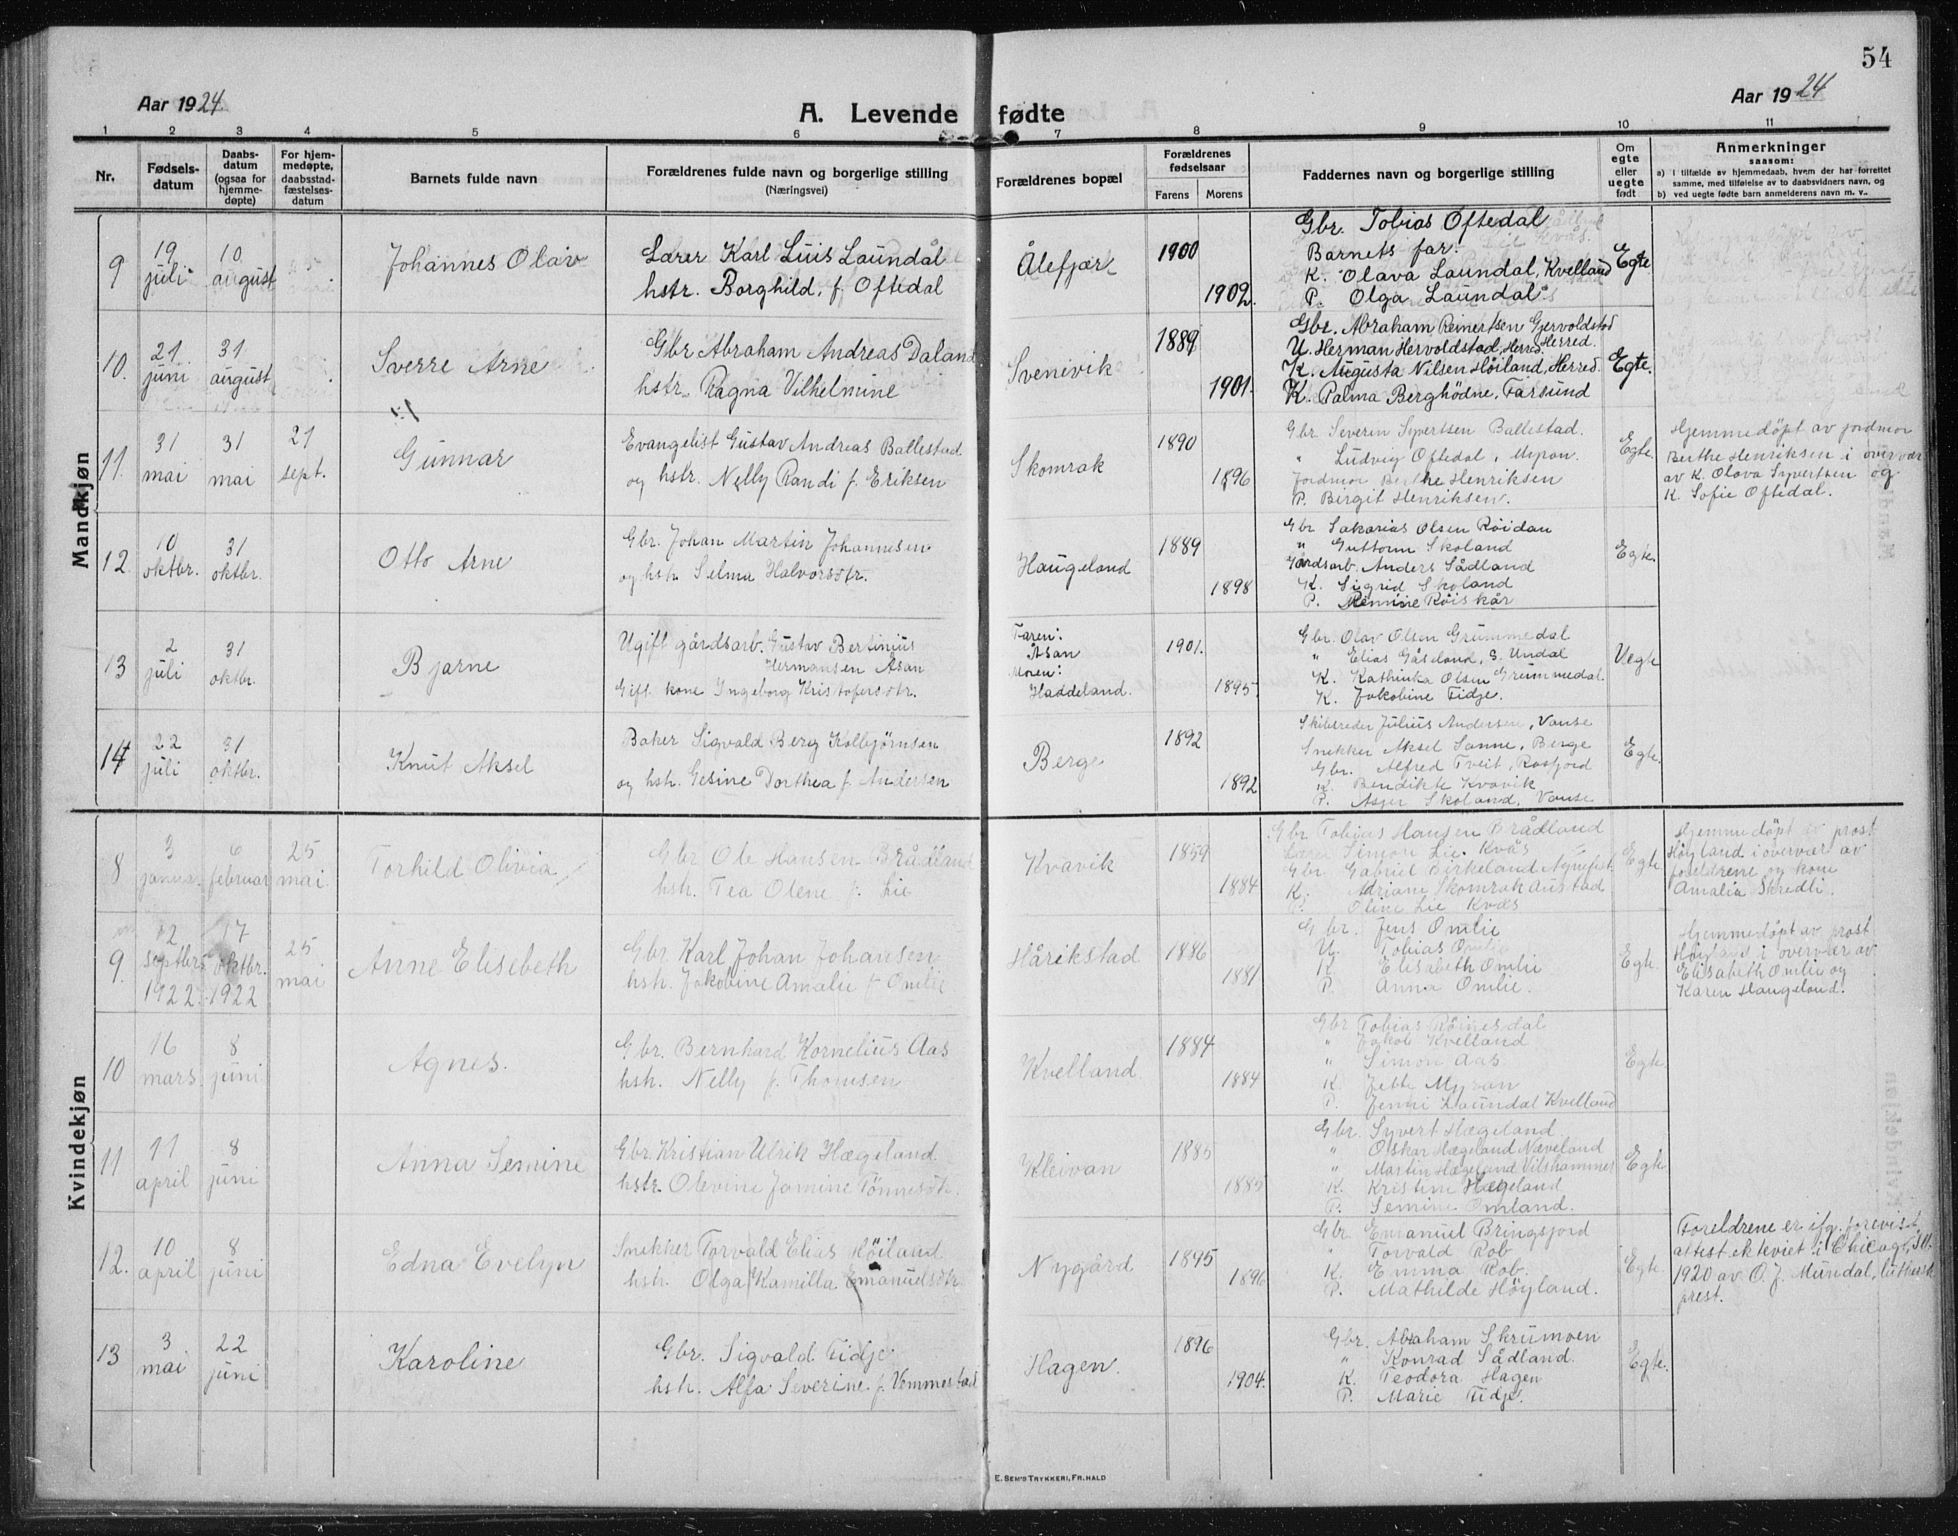 54
Aar 1924.
A. Levende fødte
Aar 1924
1 2 3 4 5 6 7 8 9 10 11
Nr.
Fødsels-
datum
Daabs-
datum
(ogsaa for
hjemme-
døpte)
For hjem-
medøpte,
daabsstad-
fæstelses-
datum
Barnets fulde navn
Forældrenes fulde navn og borgerlige stilling
(Næringsvei)
Forældrenes bopæl
Forældrenes
fødselsaar
Farens Morens
Faddernes navn og borgerlige stilling
Om
egte
eller
uegte
født
Anmerkninger
saasom:
a) i tilfælde av hjemmedaab, hvem der har forrettet
samme, med tilføielse av to daabsvidners navn, og
b) ved uegte fødte barn anmelderens navn m. v.
Mandkjøn
9
19
juli
10
august
Johannes Olav
Lærer Karl Luis Laundål
hstr. Borghild, f. Oftedal
Ålefjær
1900
1902.
Gbr. Tobias Oftedal
Barnets far.
K. Olava Laundal, Kvelland
P. Olga Laundal
Egte
10.
21
juni
31
august
Sverre Arne
Gbr Abraham Andreas Daland
hstr. Ragna Vilhelmine
Svenevik
1889
1901.
Gbr. Abraham Reinertsen Gjervoldstad
U. Herman Hervoldstad, Herred. Herred.
K. Augusta Nilsen Høiland, Herred.
K. Palma Berghödne, Farsund
Egte.
11.
31
mai
31
mai
21
sept.
Gunnar
Evangelist Gustav Andreas Ballestad
og hstr. Nelly Randi f. Eriksen
Skomrak
1890
1896
Gbr Severin Syvertsen Ballestad.
" Ludvig Oftedal,
Jordmor Berthe Henriksen
P. Bergit Henriksen.
Egte.
Hjemmedöpt av jordmor
Berthe Henriksen i overvær
av K. Olava Syvertsen og
K. Sofie Oftedal.
12
10
oktbr.
31
oktbr.
Otto Arne
Gbr. Johan Martin Johannesen
og hst. Selma Halvorsdtr.
Haugeland
1889
1898
Gbr Sakarias Olsen Röidan
" Guttorm Skoland
Gårdsarb. Anders Sådland
K. Sigrid Skoland
P. Röiskår
Egte.
13
2
juli
31
oktbr.
Bjarne
Ugift gårdsarb. Gustav Bertinius
Hermansen Åsan
Gift kone Ingeborg Kristofersdtr.
Faren:
Åsan
Moren:
Haddeland.
1901.
1895
Gbr. Olav Olsen Grummedal
" Elias Gåseland, S. Undal
K. Kathinka Olsen Grummedal.
K. Jakobine Fidje.
Uegte
14
22
juli
31
oktbr.
Knut Aksel
Baker Sigvald Berg Kolbjørnsen
og hst. Gesine Dorthea f. Andersen
Berge
1892
1892
Skibsreder Julius Andersen, Vanse
Snekker Aksel Sanne, Berge
Gbr. Alfred Tveit, Rosfjord
K. Bendikte Kvavik
P. Asjer Skoland, Vanse
Egte.
Kvindekjøn
8
3
januar
6
februar
25
mai
Torhild Olivia
Gbr Ole Hansen Brådland
hst. Tea Olene f. Lie
Kvavik
1859
1884
Gbr Tobias Hansen Brådland
Lærer Simon Lie. Kvås
Gbr. Gabriel Birkeland Agnefest
K. Adriane Skomrak Austad
P. Oline Lie Kvås
Egte
Hjemmedöpt av prost
Høyland i overvær av
foreldrene og kone
Amalia Skredli.
9
12
septbr.
1922
17
oktbr.
1922
25
mai
Anne Elisebeth
Gbr Karl Johan Johansen
hst. Jakobine Amalie f. Omlie
Hårikstad
1886
1881
Gbr. Jens Omlie
U. Tobias Omlie
K. Elisabeth Omlie
P. Anna Omlie.
Egte.
Hjemmedöpt av prost
Høyland i overvær av
Elisabeth Omlie og
Karen Haugeland.
10
16
mars.
8
juni
Agnes.
Gbr. Bernhard Kornelius Aas
hst. Nelly f. Thomsen
Kvelland
1884
1884
Gbr Tobias Röinesdal
" Jakob Kvelland
" Simon Aas
K. Jette Myran
P. Jenni Laundal Kvelland
Egte
11
11
april
8
juni
Anna Semine
Gbr. Kristian Ulrik Hægeland
hstr. Olevine Jamine Tönnesdtr.
Kleivan
1885
1885
Gbr. Syvert Hægeland
" Olskar Hægeland Næveland
" Martin Hægeland Vilshammer
K. Kristine Hægeland
P. Semine Omland.
Egte
12.
10
april
8
juni
Edna Evelyn
Snekker Torvald Elias Höiland
hst. Olga Kamilla Emanuelsdtr.
Nygård
1895
1896
Gbr Emanuel Bringsjord
" Torvald Rob
K. Emma Rob.
P. Mathilde Höyland.
Egte
Foreldrene er ifg. forevist
attest ekteviet i Chicago, Ill.
1920 av O. J. Mundal, luthersk
prest.
13
3
mai
22
juni
Karoline
Gbr. Sigvald Fidje
hst. Alfa Severine f. Vemmestad
Hagen.
1896
1904.
Gbr. Abraham Skrumoen
" Konrad Sådland.
K. Teodora Hagen
P. Marie Fidje.
Egte.
E. SEM'S TRYKKERI, FR.HALD